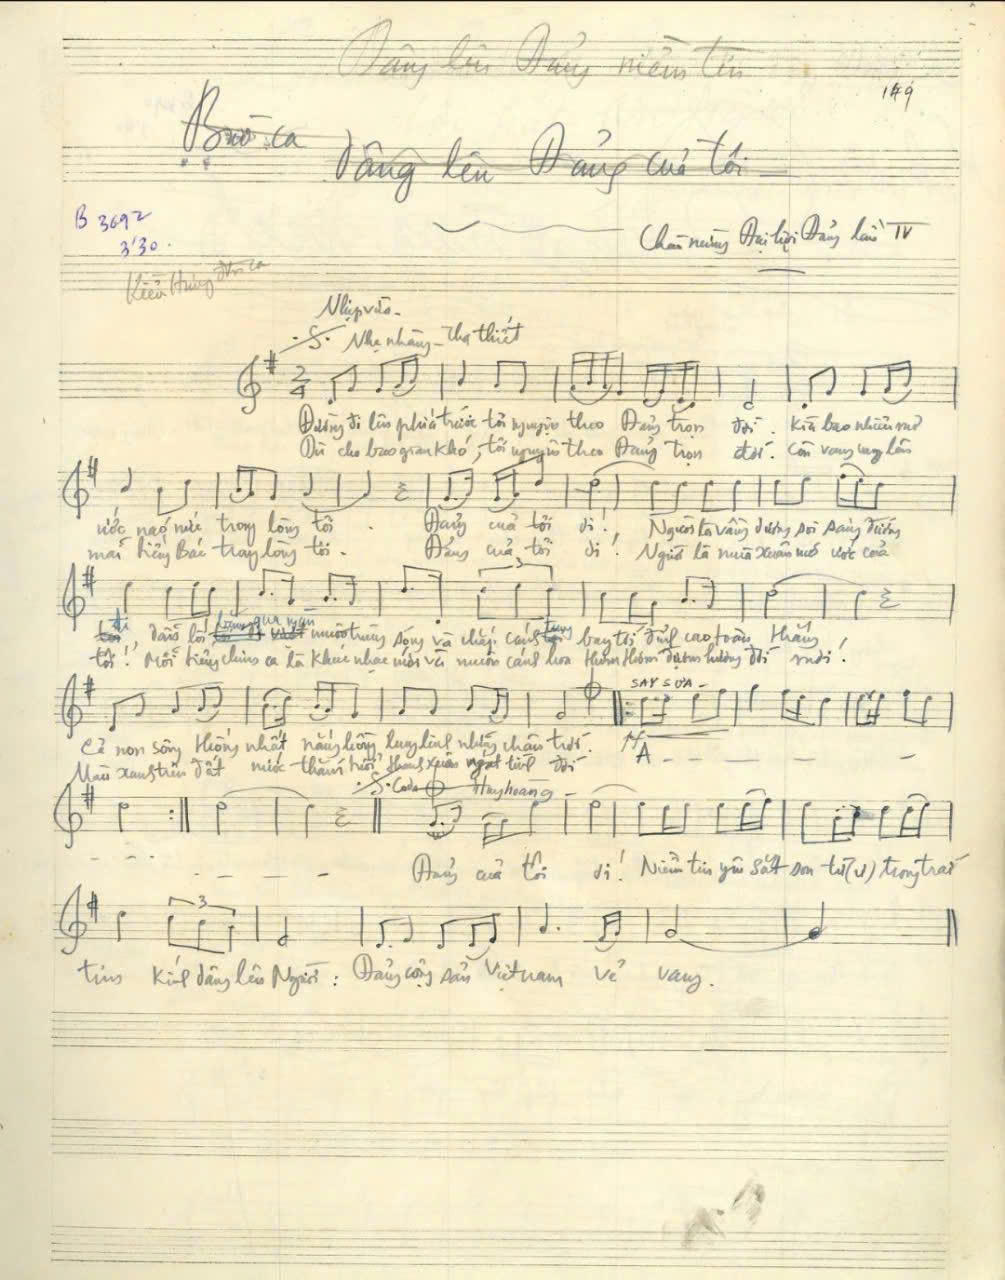 Dâng lên Đảng niềm tin
149
Bài ca
dâng lên Đảng của tôi
B 3692
3'30.
Chào mừng Đại hội Đảng lần IV
Kiều Hưng đơn ca
Nhịp vừa -
Nhẹ nhàng - Tha thiết
Đường đi lên phía trước tôi nguyện theo Đảng trọn đời. Kìa bao nhiêu mơ
Dù cho bao gian khó, tôi nguyện theo Đảng trọn đời. Còn vang vọng lên
ước náo nức trong lòng tôi. Đảng của tôi ơi! Người là vầng dương soi sáng đường
mãi tiếng Bác trong lòng tôi. Đảng của tôi ơi! Người là mùa xuân mơ ước của
đi
bằng qua ngàn
tung
dẫn lối muôn trùng sóng và chắp cánh bay tới đỉnh cao toàn thắng!
tôi! Mỗi tiếng chim ca là khúc nhạc mới và muôn cánh hoa thơm thơm đượm hương đời mới!
SAY SƯA -
Cả non sông thống nhất nắng hồng lung linh những chân trời.
Màu xanh trên đất nước thắm tươi thanh xuân ngát tình đời
A - - - -
Coda
Huy hoàng -
Đảng của tôi ơi! Niềm tin yêu sắt son từ (ư) trong trái
3
tim kính dâng lên Người: Đảng cộng sản Việt nam vẻ vang.